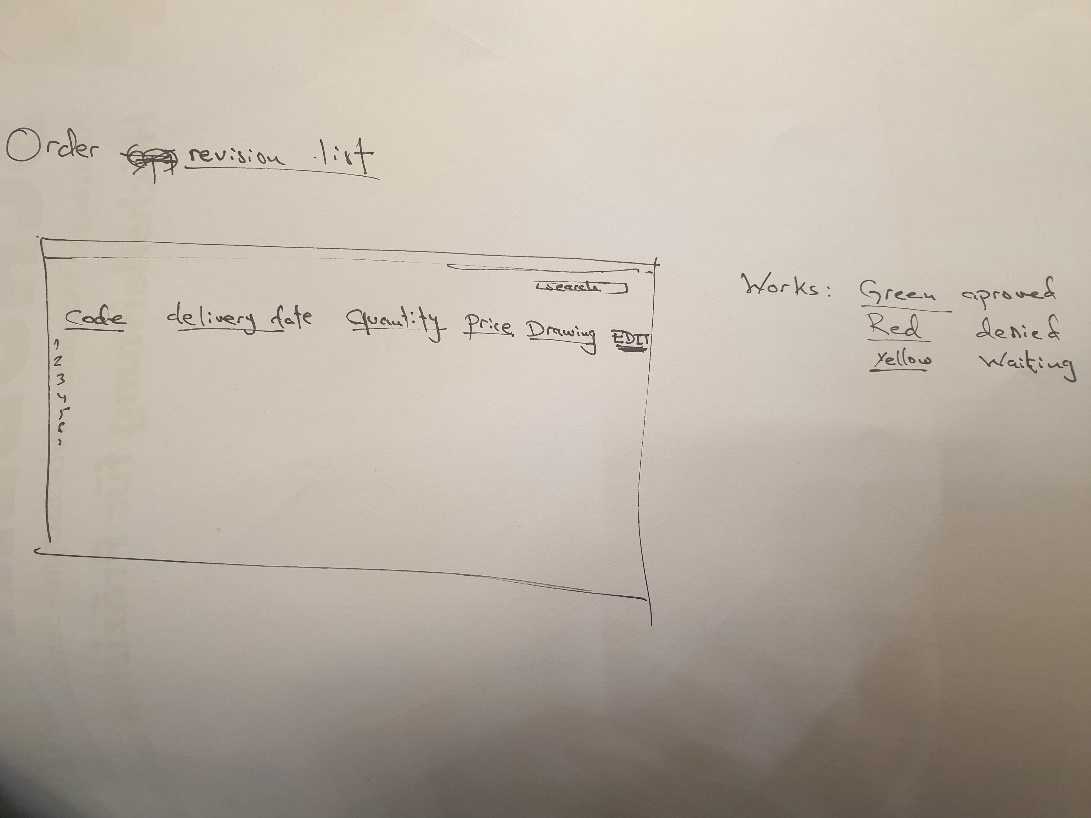 Order revision list
search
Code delivery date Quantity Price Drawing EDIT
1
2
3
4
5
6
Works: Green aproved
Red denied
Yellow Waiting